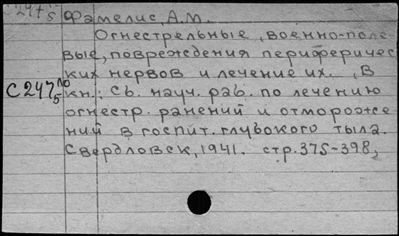 Фамелис, А.М.
Огнестрельные, военно-поле-
вые, повреждения периферичес-
ких нервов и лечение их. , В
С247 кн.: Сб. науч. раб. по лечению
огнестр. ранений и отмороже
ний в госпит. глубокого тыла.
Свердловск, 1941. стр. 375-398,